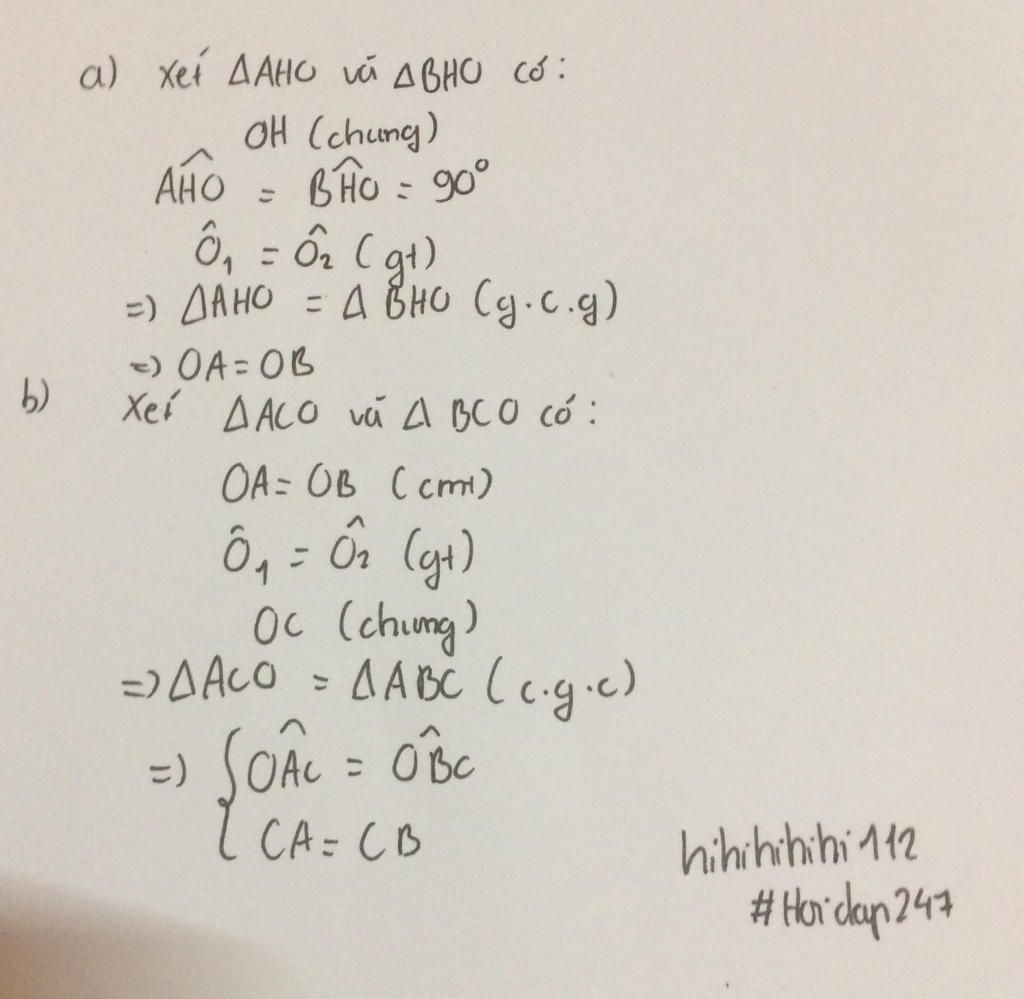 a) Xét ΔAHO và ΔBHO có:
OH (chung)
AĤO = BĤO = 90°
Ô₁ = Ô₂ (gt)
=) ΔAHO = ΔBHO (g.c.g)
=) OA = OB
b) Xét ΔACO và ΔBCO có:
OA = OB (cmt)
Ô₁ = Ô₂ (gt)
OC (chung)
=) ΔACO = ΔABC (c.g.c)
=) { OÂC = OB̂C
CA = CB
hihihihihi112
#Hoidap247